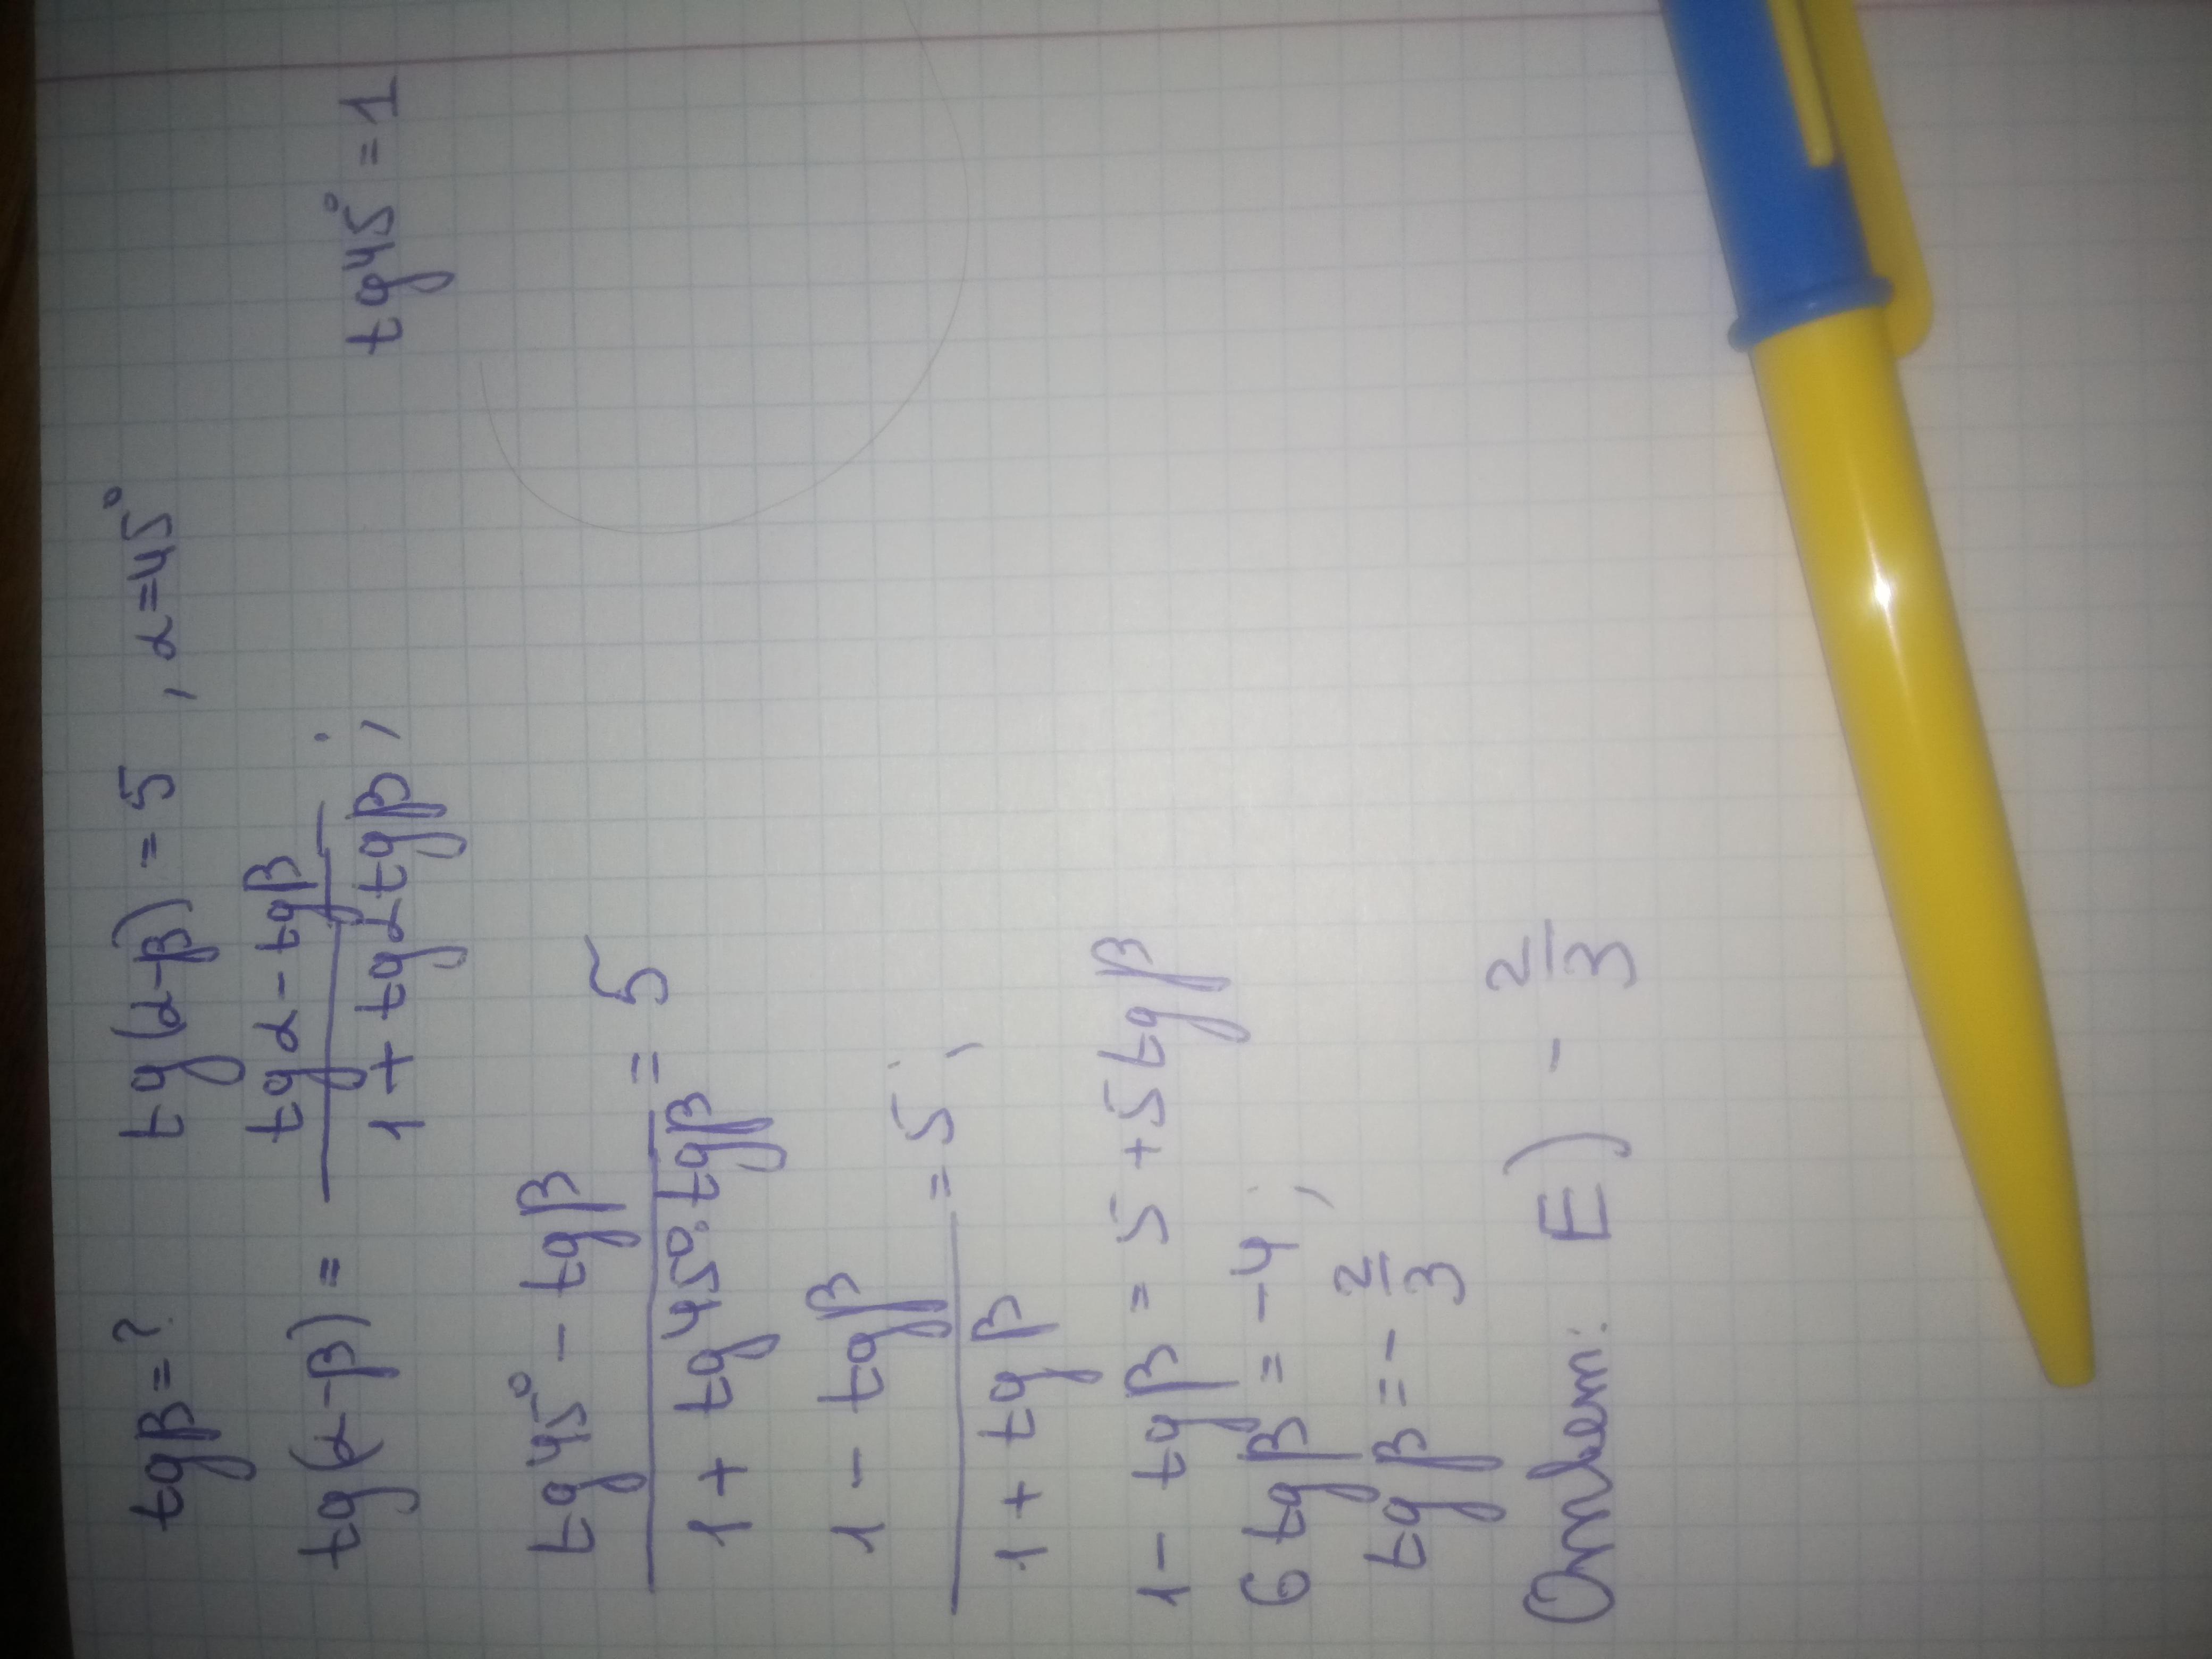 tgβ=? tg(α-β) = 5 , α=45°
tg(α-β) = \frac{tgα - tgβ}{1 + tgα tgβ} ; tg45° = 1
\frac{tg45° - tgβ}{1 + tg45°·tgβ} = 5
\frac{1 - tgβ}{1 + tgβ} = 5 ;
1 - tgβ = 5 + 5tgβ
6tgβ = -4 ;
tgβ = - \frac{2}{3}
Ответ: E) - \frac{2}{3}